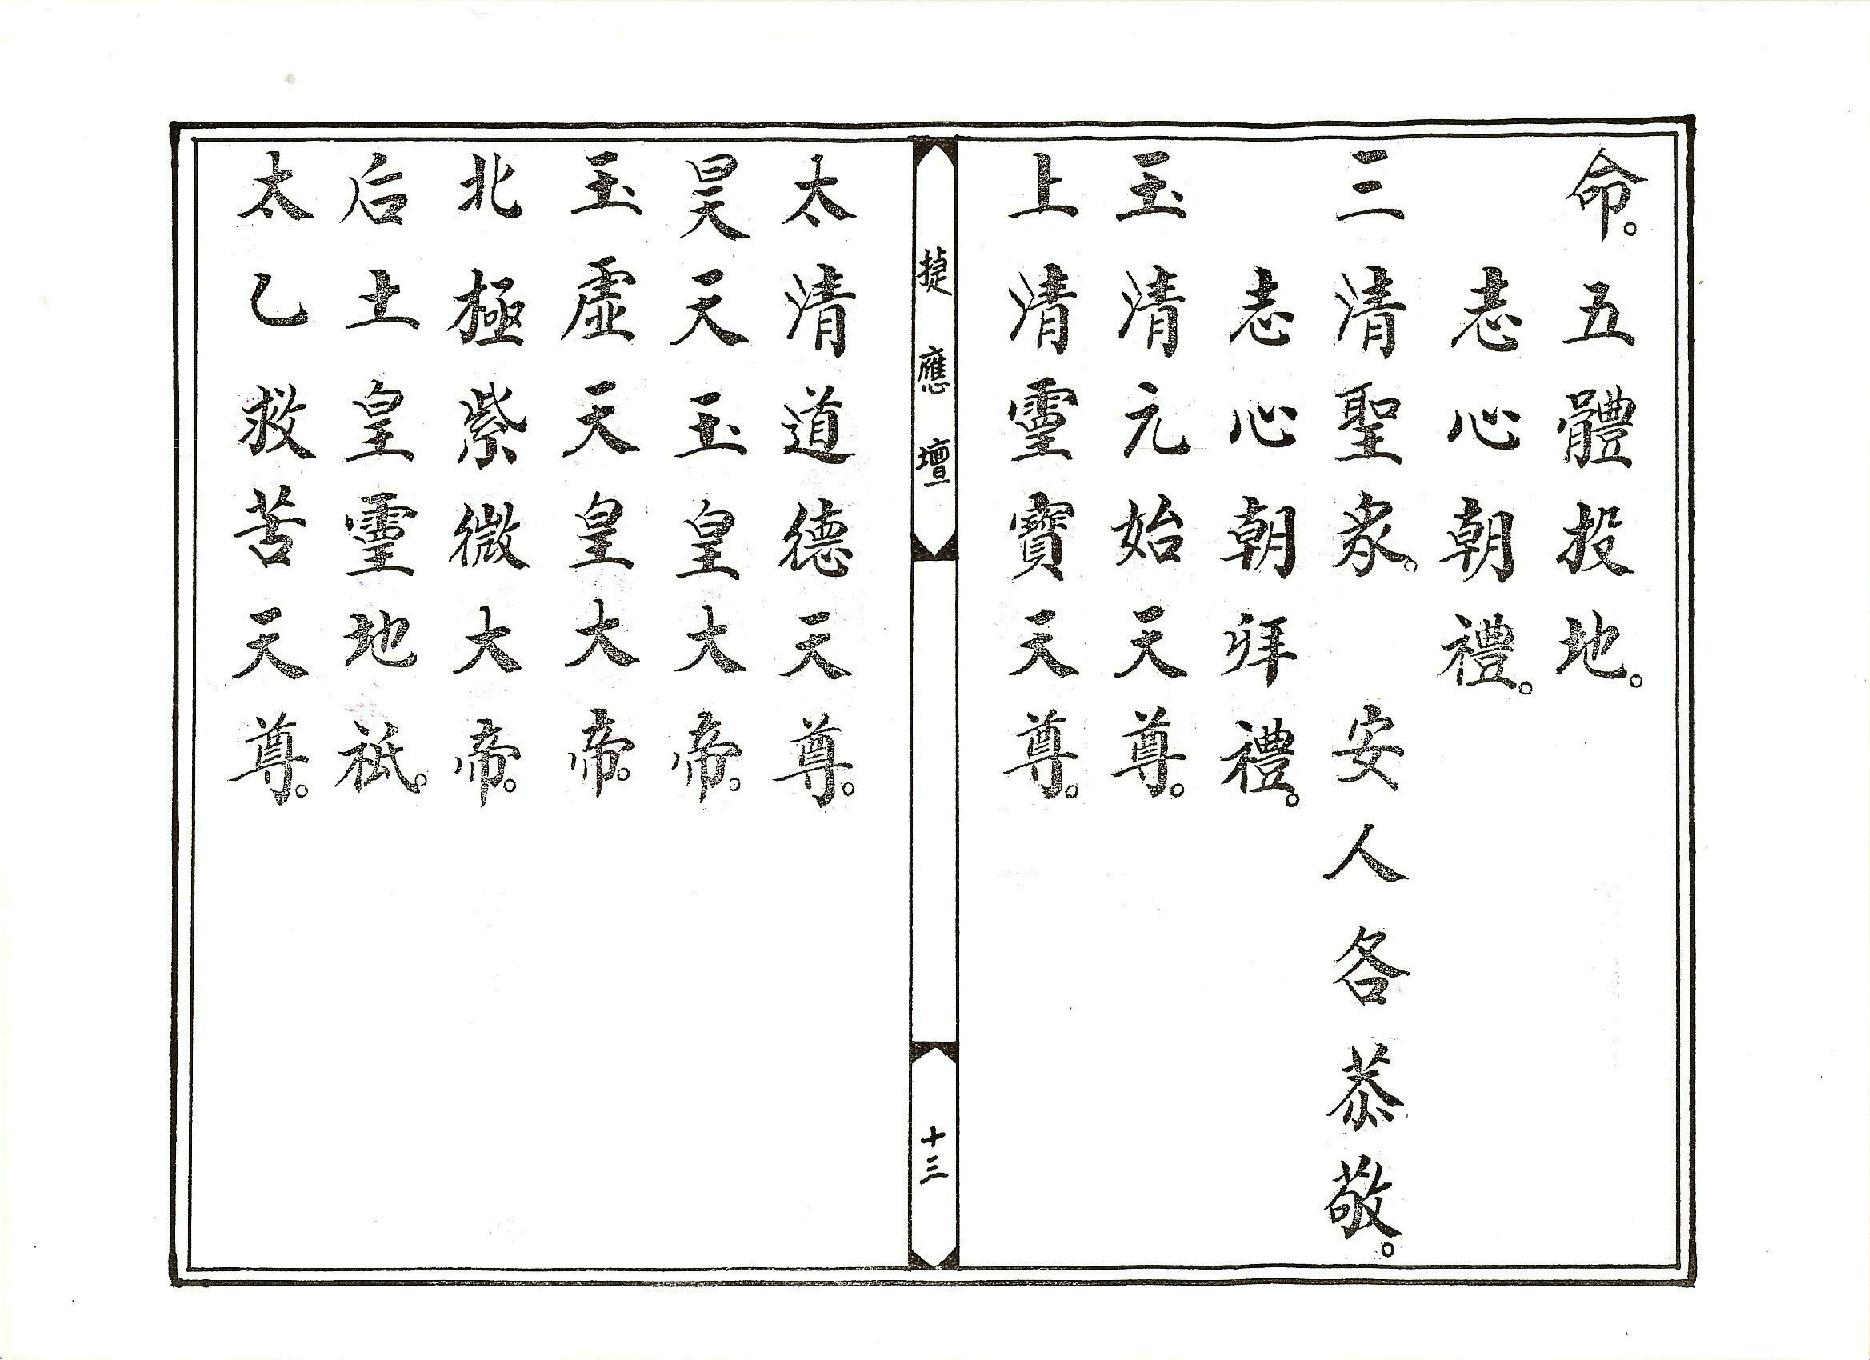 命。五體投地。
志心朝禮。
三清聖眾。　安人各恭敬。
志心朝拜禮。
玉清元始天尊。
上清靈寶天尊。
捷應壇
十三
太清道德天尊。
昊天玉皇大帝。
玉虛天皇大帝。
北極紫微大帝。
后土皇靈地祇。
太乙救苦天尊。